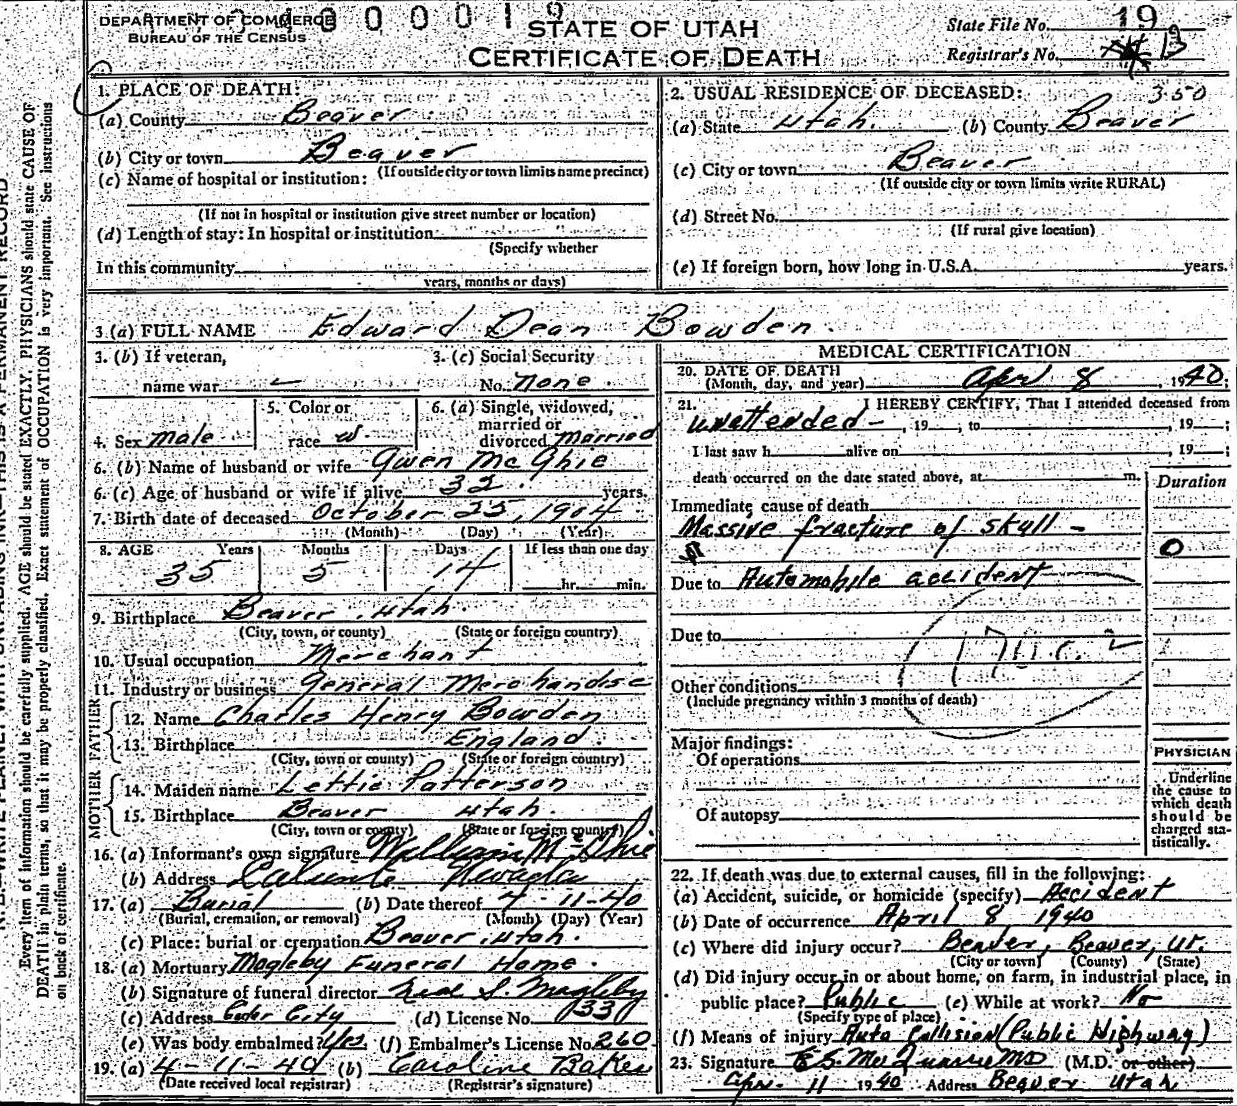 DEPARTMENT OF COMMERCE
BUREAU OF THE CENSUS
STATE OF UTAH
CERTIFICATE OF DEATH
State File No. 19
Registrar's No. 13
1. PLACE OF DEATH:
(a) County Beaver
(b) City or town Beaver
(If outside city or town limits name precinct)
(c) Name of hospital or institution:
(If not in hospital or institution give street number or location)
(d) Length of stay: In hospital or institution
(Specify whether
In this community
years, months or days)
2. USUAL RESIDENCE OF DECEASED: 350
(a) State Utah. (b) County Beaver
(c) City or town Beaver
(If outside city or town limits write RURAL)
(d) Street No.
(If rural give location)
(e) If foreign born, how long in U.S.A. years.
3. (a) FULL NAME Edward Dean Bowden.
3. (b) If veteran,
name war
3. (c) Social Security
No. none
4. Sex male
5. Color or
race w
6. (a) Single, widowed,
married or
divorced married
6. (b) Name of husband or wife Gwen McGhie
6. (c) Age of husband or wife if alive 32 years.
7. Birth date of deceased October 25, 1904
(Month) (Day) (Year)
8. AGE Years Months Days If less than one day
35 5 14 hr. min.
9. Birthplace Beaver, Utah.
(City, town, or county) (State or foreign country)
10. Usual occupation Merchant
11. Industry or business General Merchandise
FATHER
12. Name Charles Henry Bowden
13. Birthplace England.
(City, town or county) (State or foreign country)
MOTHER
14. Maiden name Lettie Patterson
15. Birthplace Beaver Utah.
(City, town or county) (State or foreign country)
16. (a) Informant's own signature William McGhie
(b) Address Caliente Nevada
17. (a) Burial (b) Date thereof 7-11-40
(Burial, cremation, or removal) (Month) (Day) (Year)
(c) Place: burial or cremation Beaver, Utah.
18. (a) Mortuary Magleby Funeral Home.
(b) Signature of funeral director S. Magleby
(c) Address Cedar City (d) License No. 330
(e) Was body embalmed? Yes (f) Embalmer's License No. 260
19. (a) 4-11-40 (b) Caroline Baker
(Date received local registrar) (Registrar's signature)
MEDICAL CERTIFICATION
20. DATE OF DEATH
(Month, day, and year) Apr 8, 1940;
21. I HEREBY CERTIFY, That I attended deceased from
unattended-, 19 ; to , 19 ;
I last saw h alive on , 19 ;
death occurred on the date stated above, at m.
Duration
Immediate cause of death
Massive fracture of skull -
0
Due to Automobile accident
Due to
170c. 2
Other conditions
(Include pregnancy within 3 months of death)
Major findings:
Of operations
Of autopsy
PHYSICIAN
Underline
the cause to
which death
should be
charged sta-
tistically.
22. If death was due to external causes, fill in the following:
(a) Accident, suicide, or homicide (specify) Accident
(b) Date of occurrence April 8 1940
(c) Where did injury occur? Beaver, Beaver, Ut.
(City or town) (County) (State)
(d) Did injury occur in or about home, on farm, in industrial place, in
public place? Public (e) While at work? No
(Specify type of place)
(f) Means of injury Auto Collision (Public Highway)
23. Signature E.S. McQuarrie MD (M.D. or other)
Apr. 11 1940 Address Beaver Utah
Every item of information should be carefully supplied. AGE should be stated EXACTLY. PHYSICIANS should state CAUSE OF
DEATH in plain terms, so that it may be properly classified. Exact statement of OCCUPATION is very important. See instructions
on back of certificate.